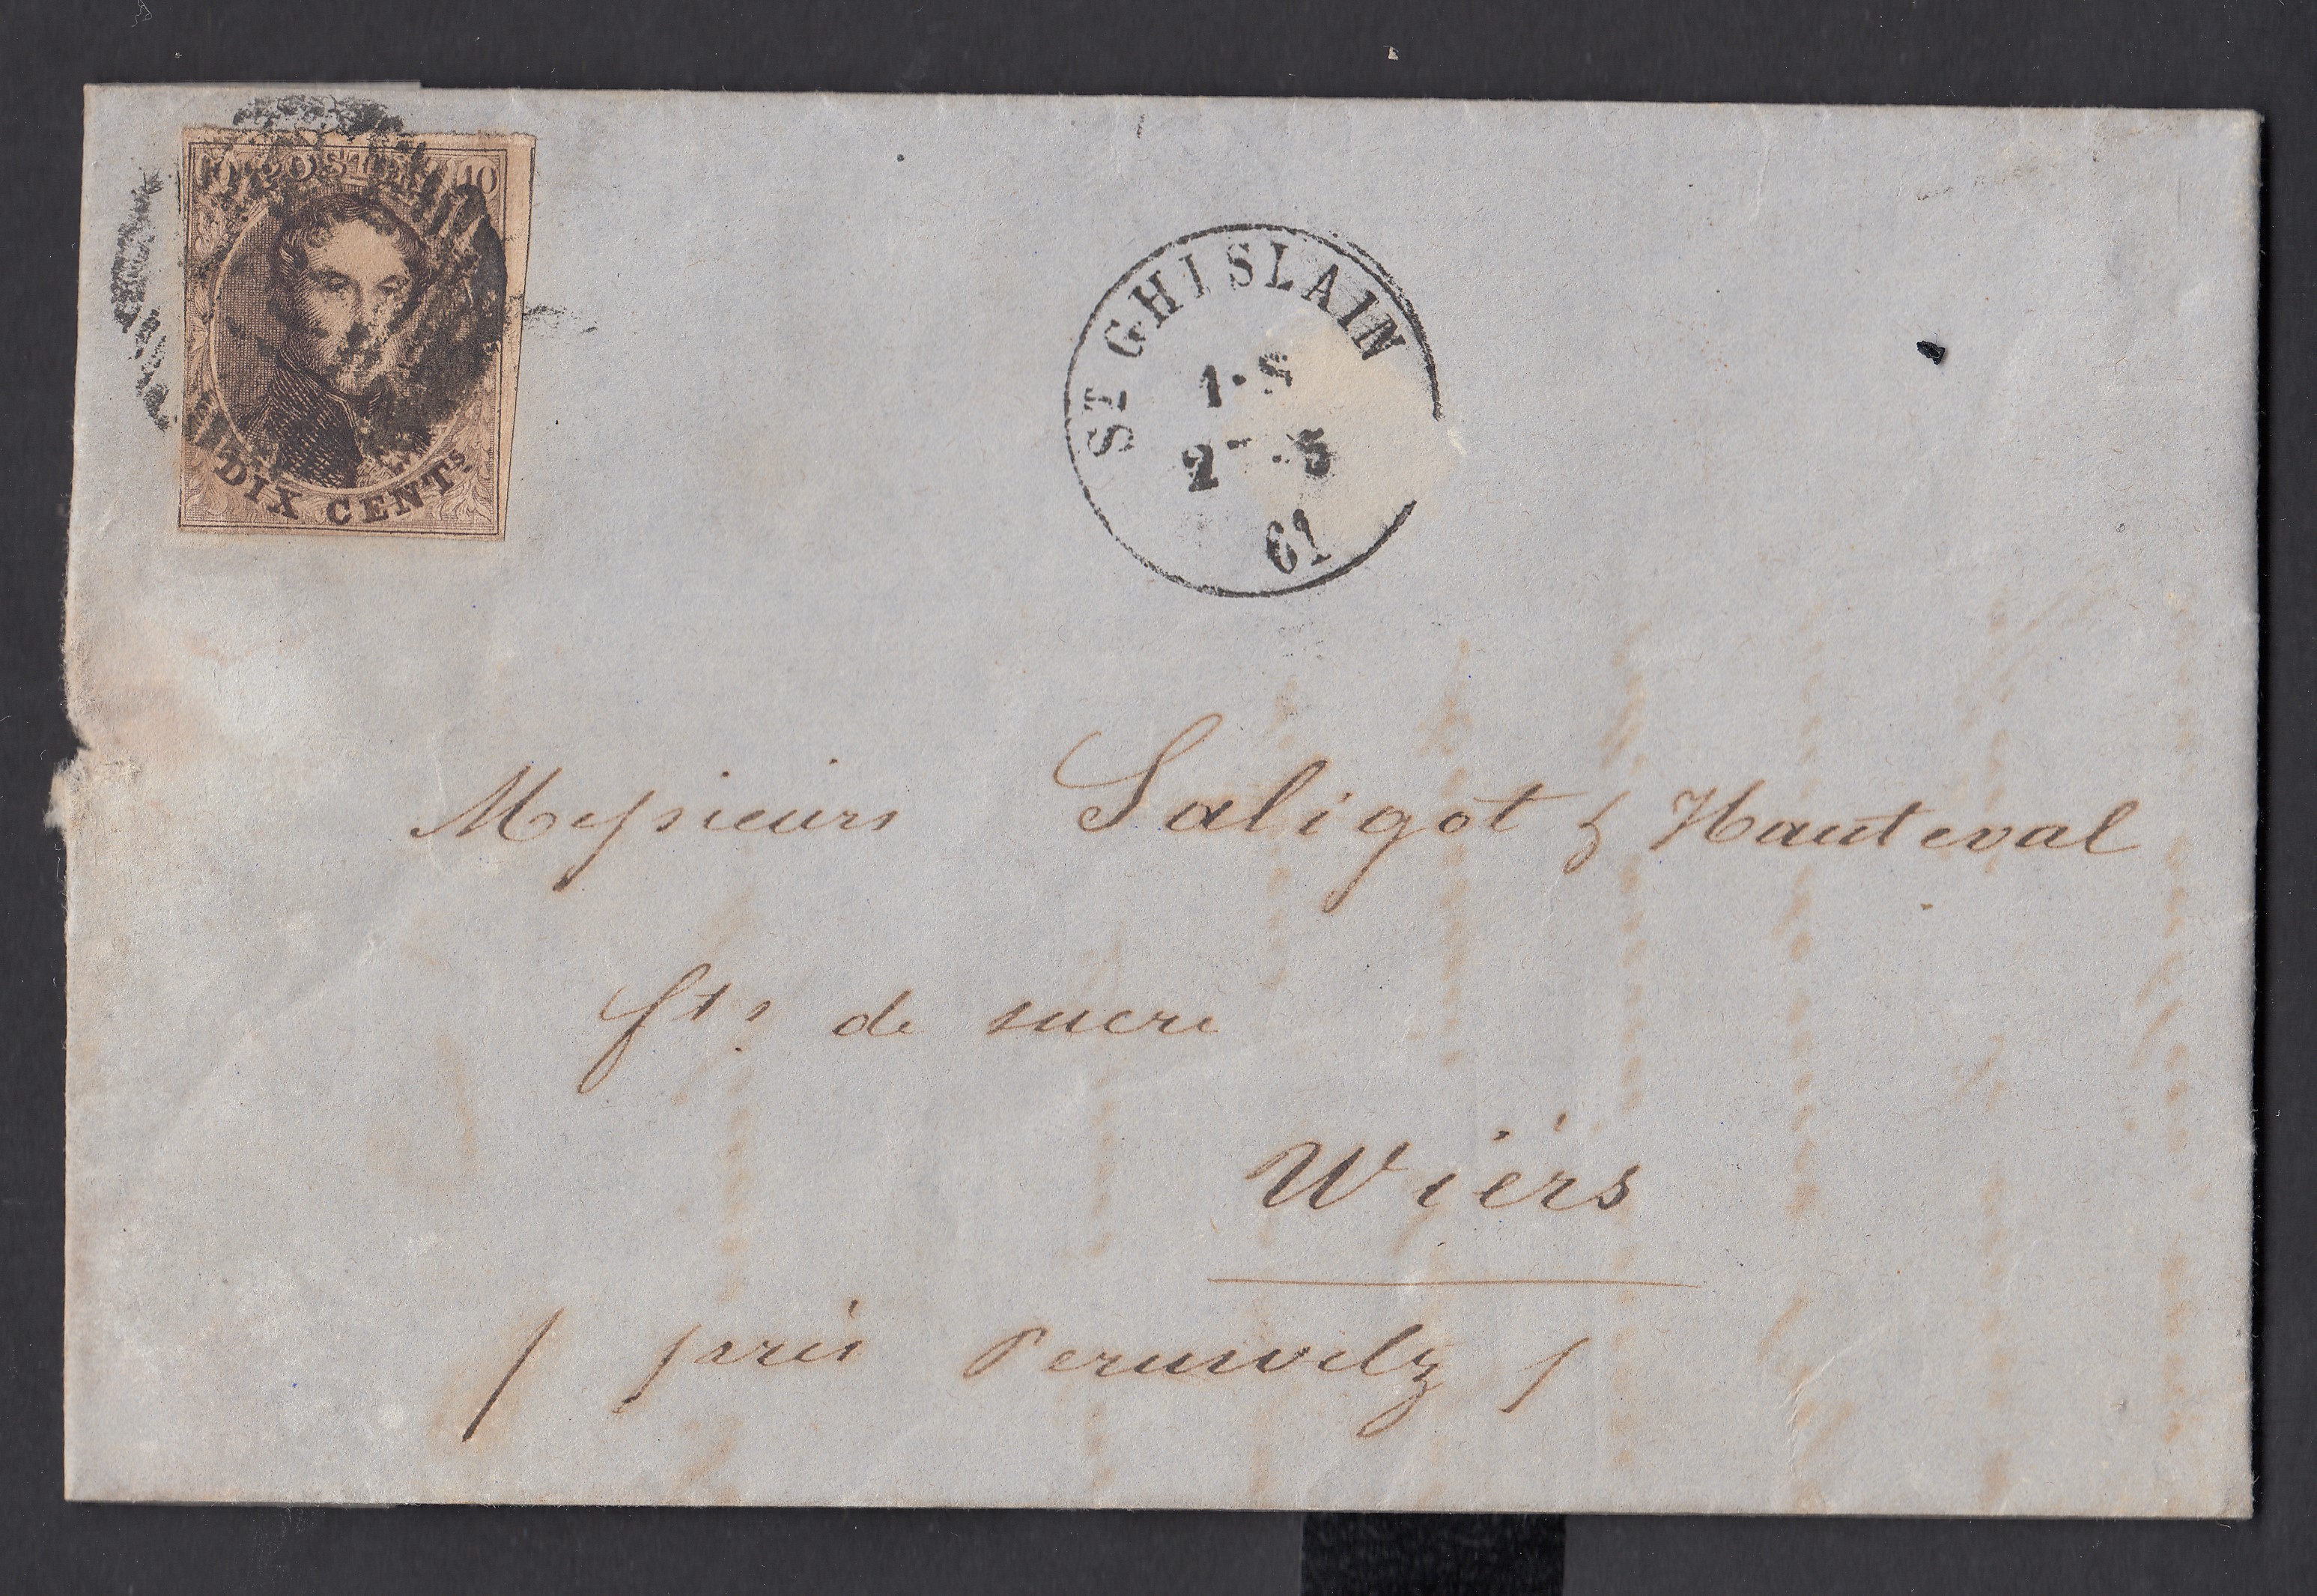 10 POSTES 10
DIX CENTS
ST GHISLAIN
1·S
27·5
61
Messieurs Saligot & Hauteval
fts de sucre
Wiers
/ près Peruwelz /